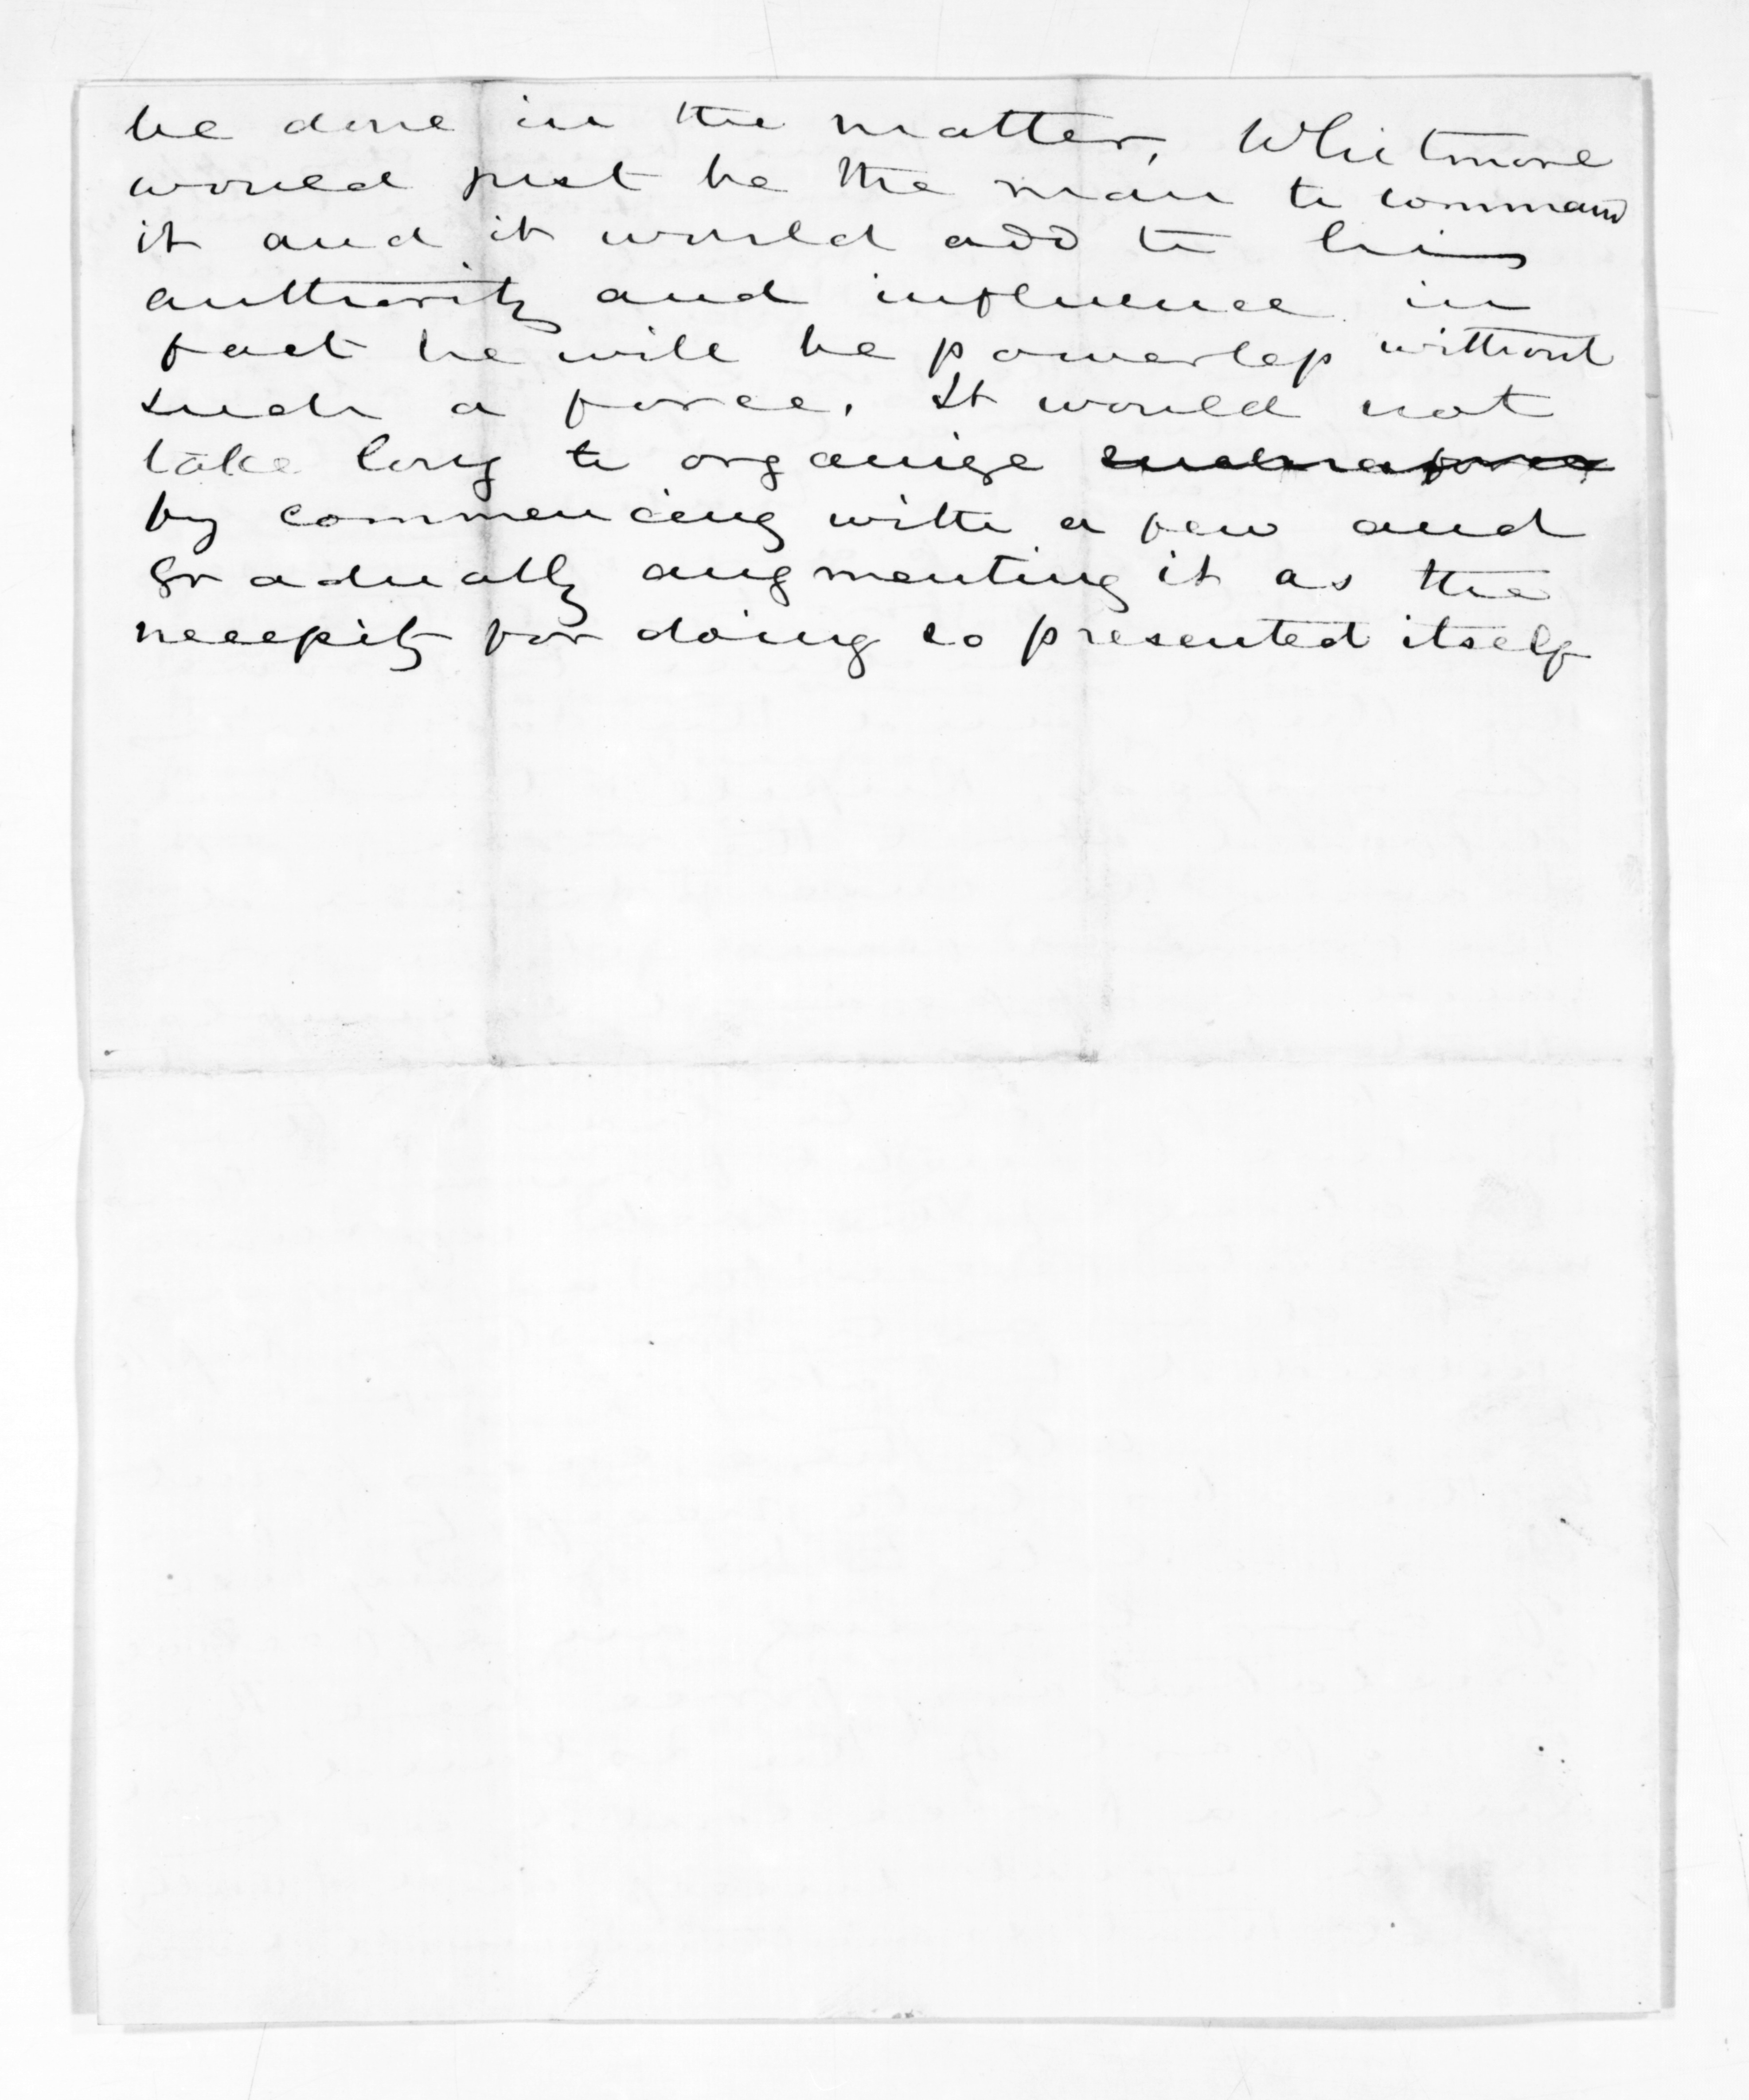 be done in the matter, Whitmore
would just be the man to command
it and it would add to his
authority and influence in
fact he will be powerless without
such a force. It would not
take long to organize such a force
by commencing with a few and
gradually augmenting it as the
necessity for doing so presented itself